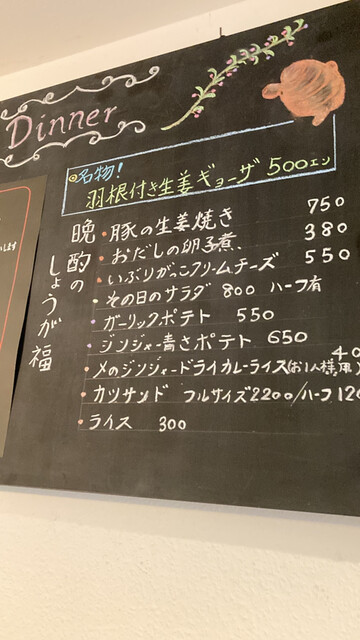 Dinner
名物!
羽根付き生姜ギョーザ 500エン
晩酌の
しょうが福
・豚の生姜焼き 750
・おだしの卵子煮、 380
・いぶりがっこクリームチーズ 550
・その日のサラダ 800 ハーフ有
・ガーリックポテト 550
・ジンジャー青さポテト 650
・〆のジンジャードライカレーライス(お1人様用) 40
・カツサンド フルサイズ2200/ハーフ 120
・ライス 300
します